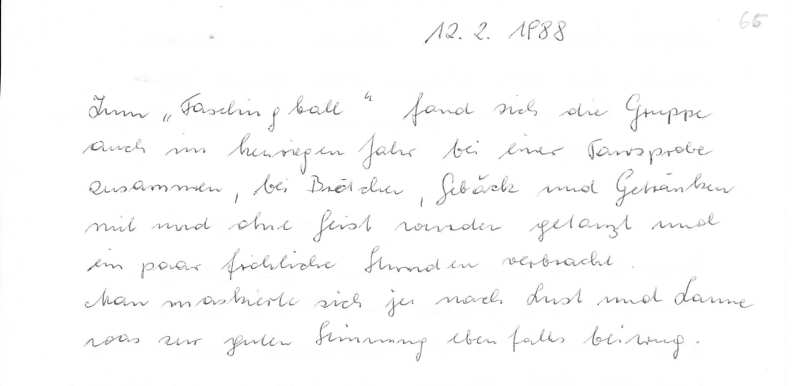 65
12. 2. 1988
Zum „Fasching ball“ fand sich die Gruppe
auch im heurigen Jahr bei einer Tanzprobe
zusammen, bei Brötchen, Gebäck und Getränken
mit und ohne Geist wurden getanzt und
ein paar fröhliche Stunden verbracht.
Man maskierte sich je nach Lust und Laune
was zur guten Stimmung ebenfalls beitrug.